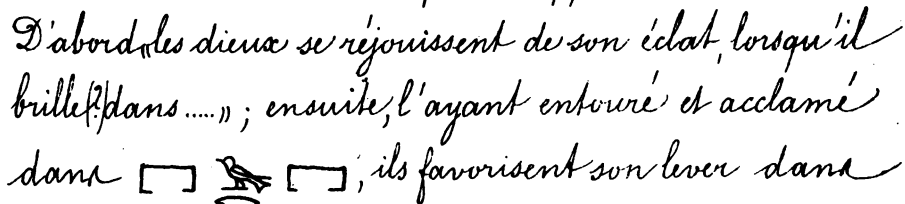 D'abord „les dieux se réjouissent de son éclat, lorsqu'il
brille(?) dans.....„ ; ensuite, l'ayant entouré et acclamé
dans 𓉐 𓅮 𓉐, ils favorisent son lever dans